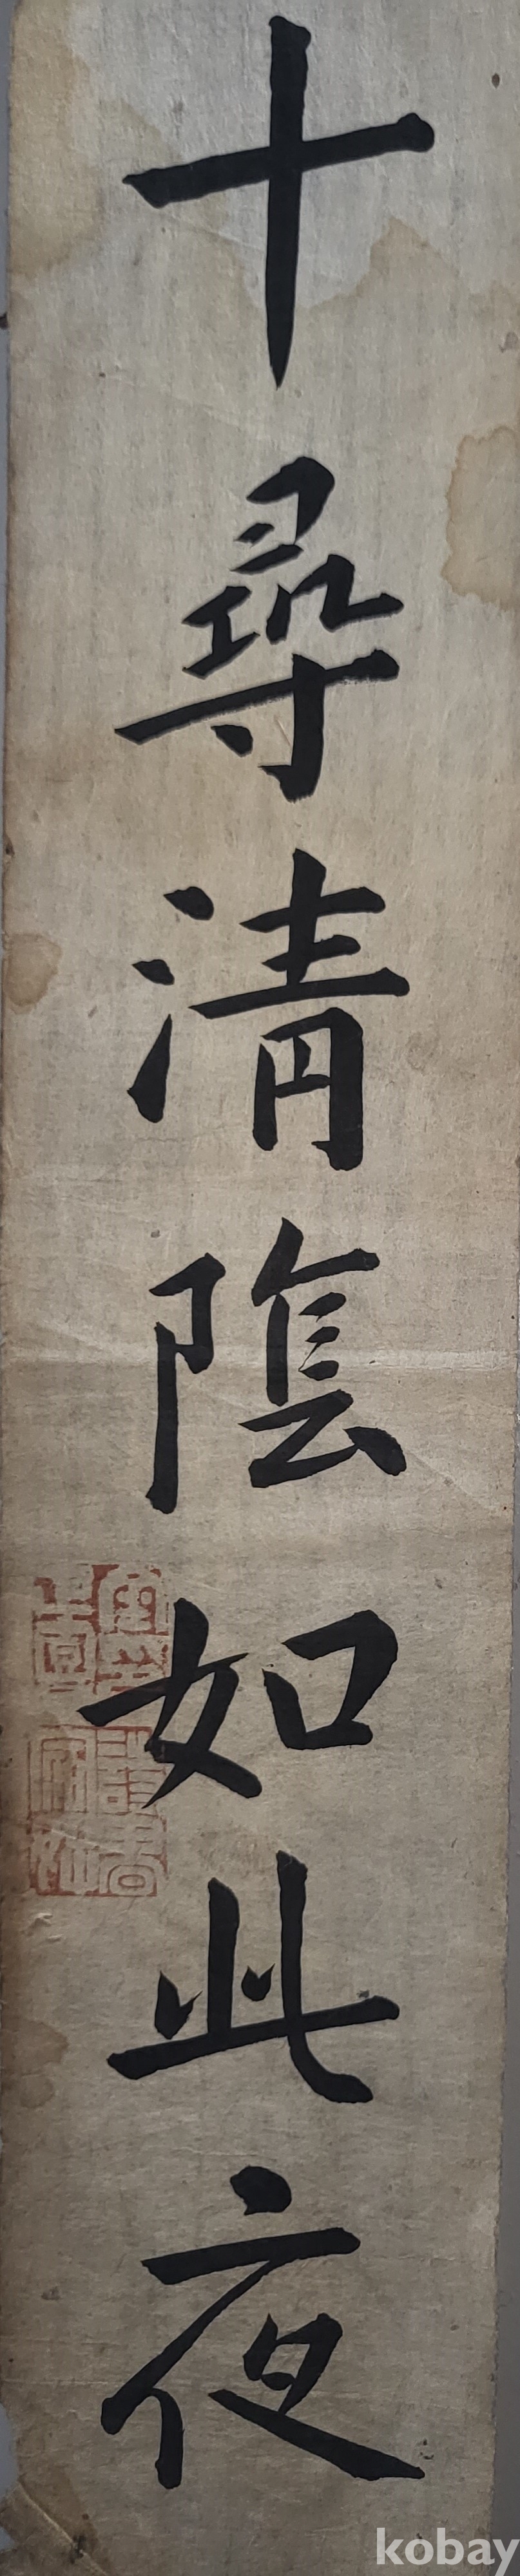 十尋清陰如此夜
kobay